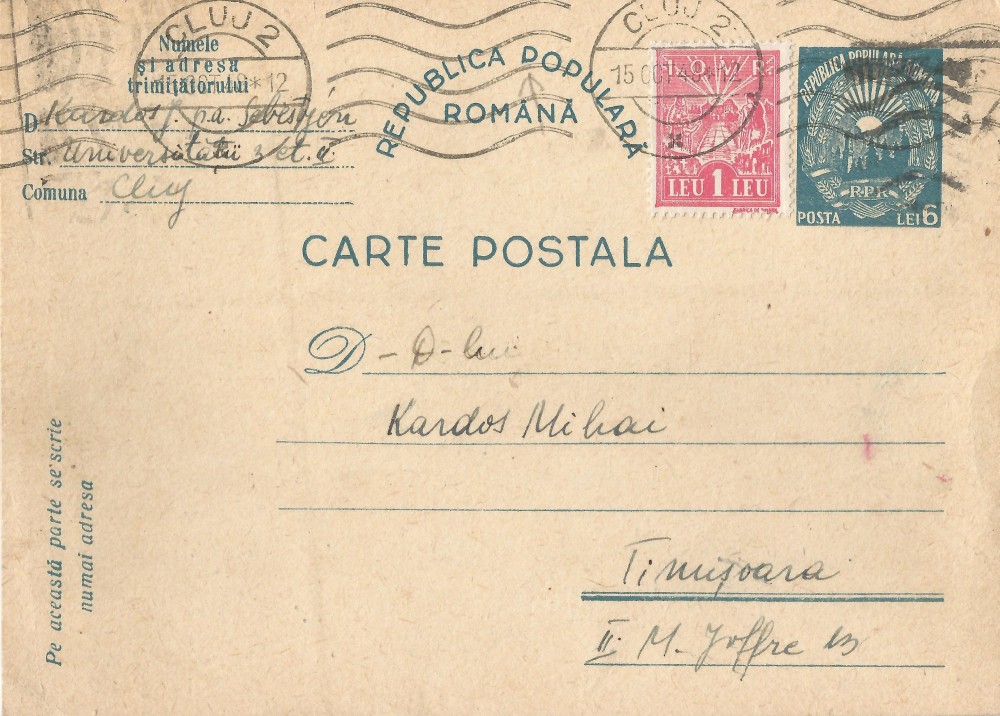 CLUJ 2
Numele
și adresa
trimițătorului
12
D Kardos J. p.a. Sebestyén
Str. Universitatii 3 et. I
Comuna Cluj
REPUBLICA POPULARĂ
ROMÂNĂ
CLUJ 2
15 OCT 49 * 12
LEU 1 LEU
REPUBLICA POPULARĂ ROMÂNĂ
R.P.R.
POSTA LEI 6
CARTE POSTALA
D - D-lui
Kardos Mihai
Timișoara
II. M. Joffre 13
Pe această parte se scrie
numai adresa